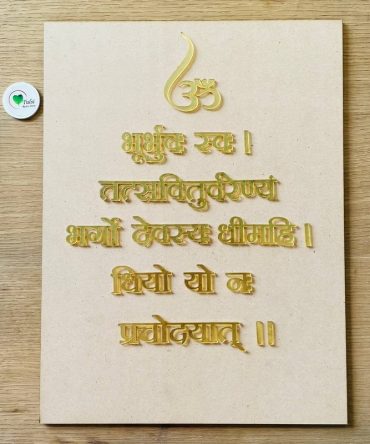 ॐ
भूर्भुवः स्वः ।
तत्सवितुर्वरेण्यं
भर्गो देवस्यः धीमहि ।
धियो यो नः
प्रचोदयात् ॥